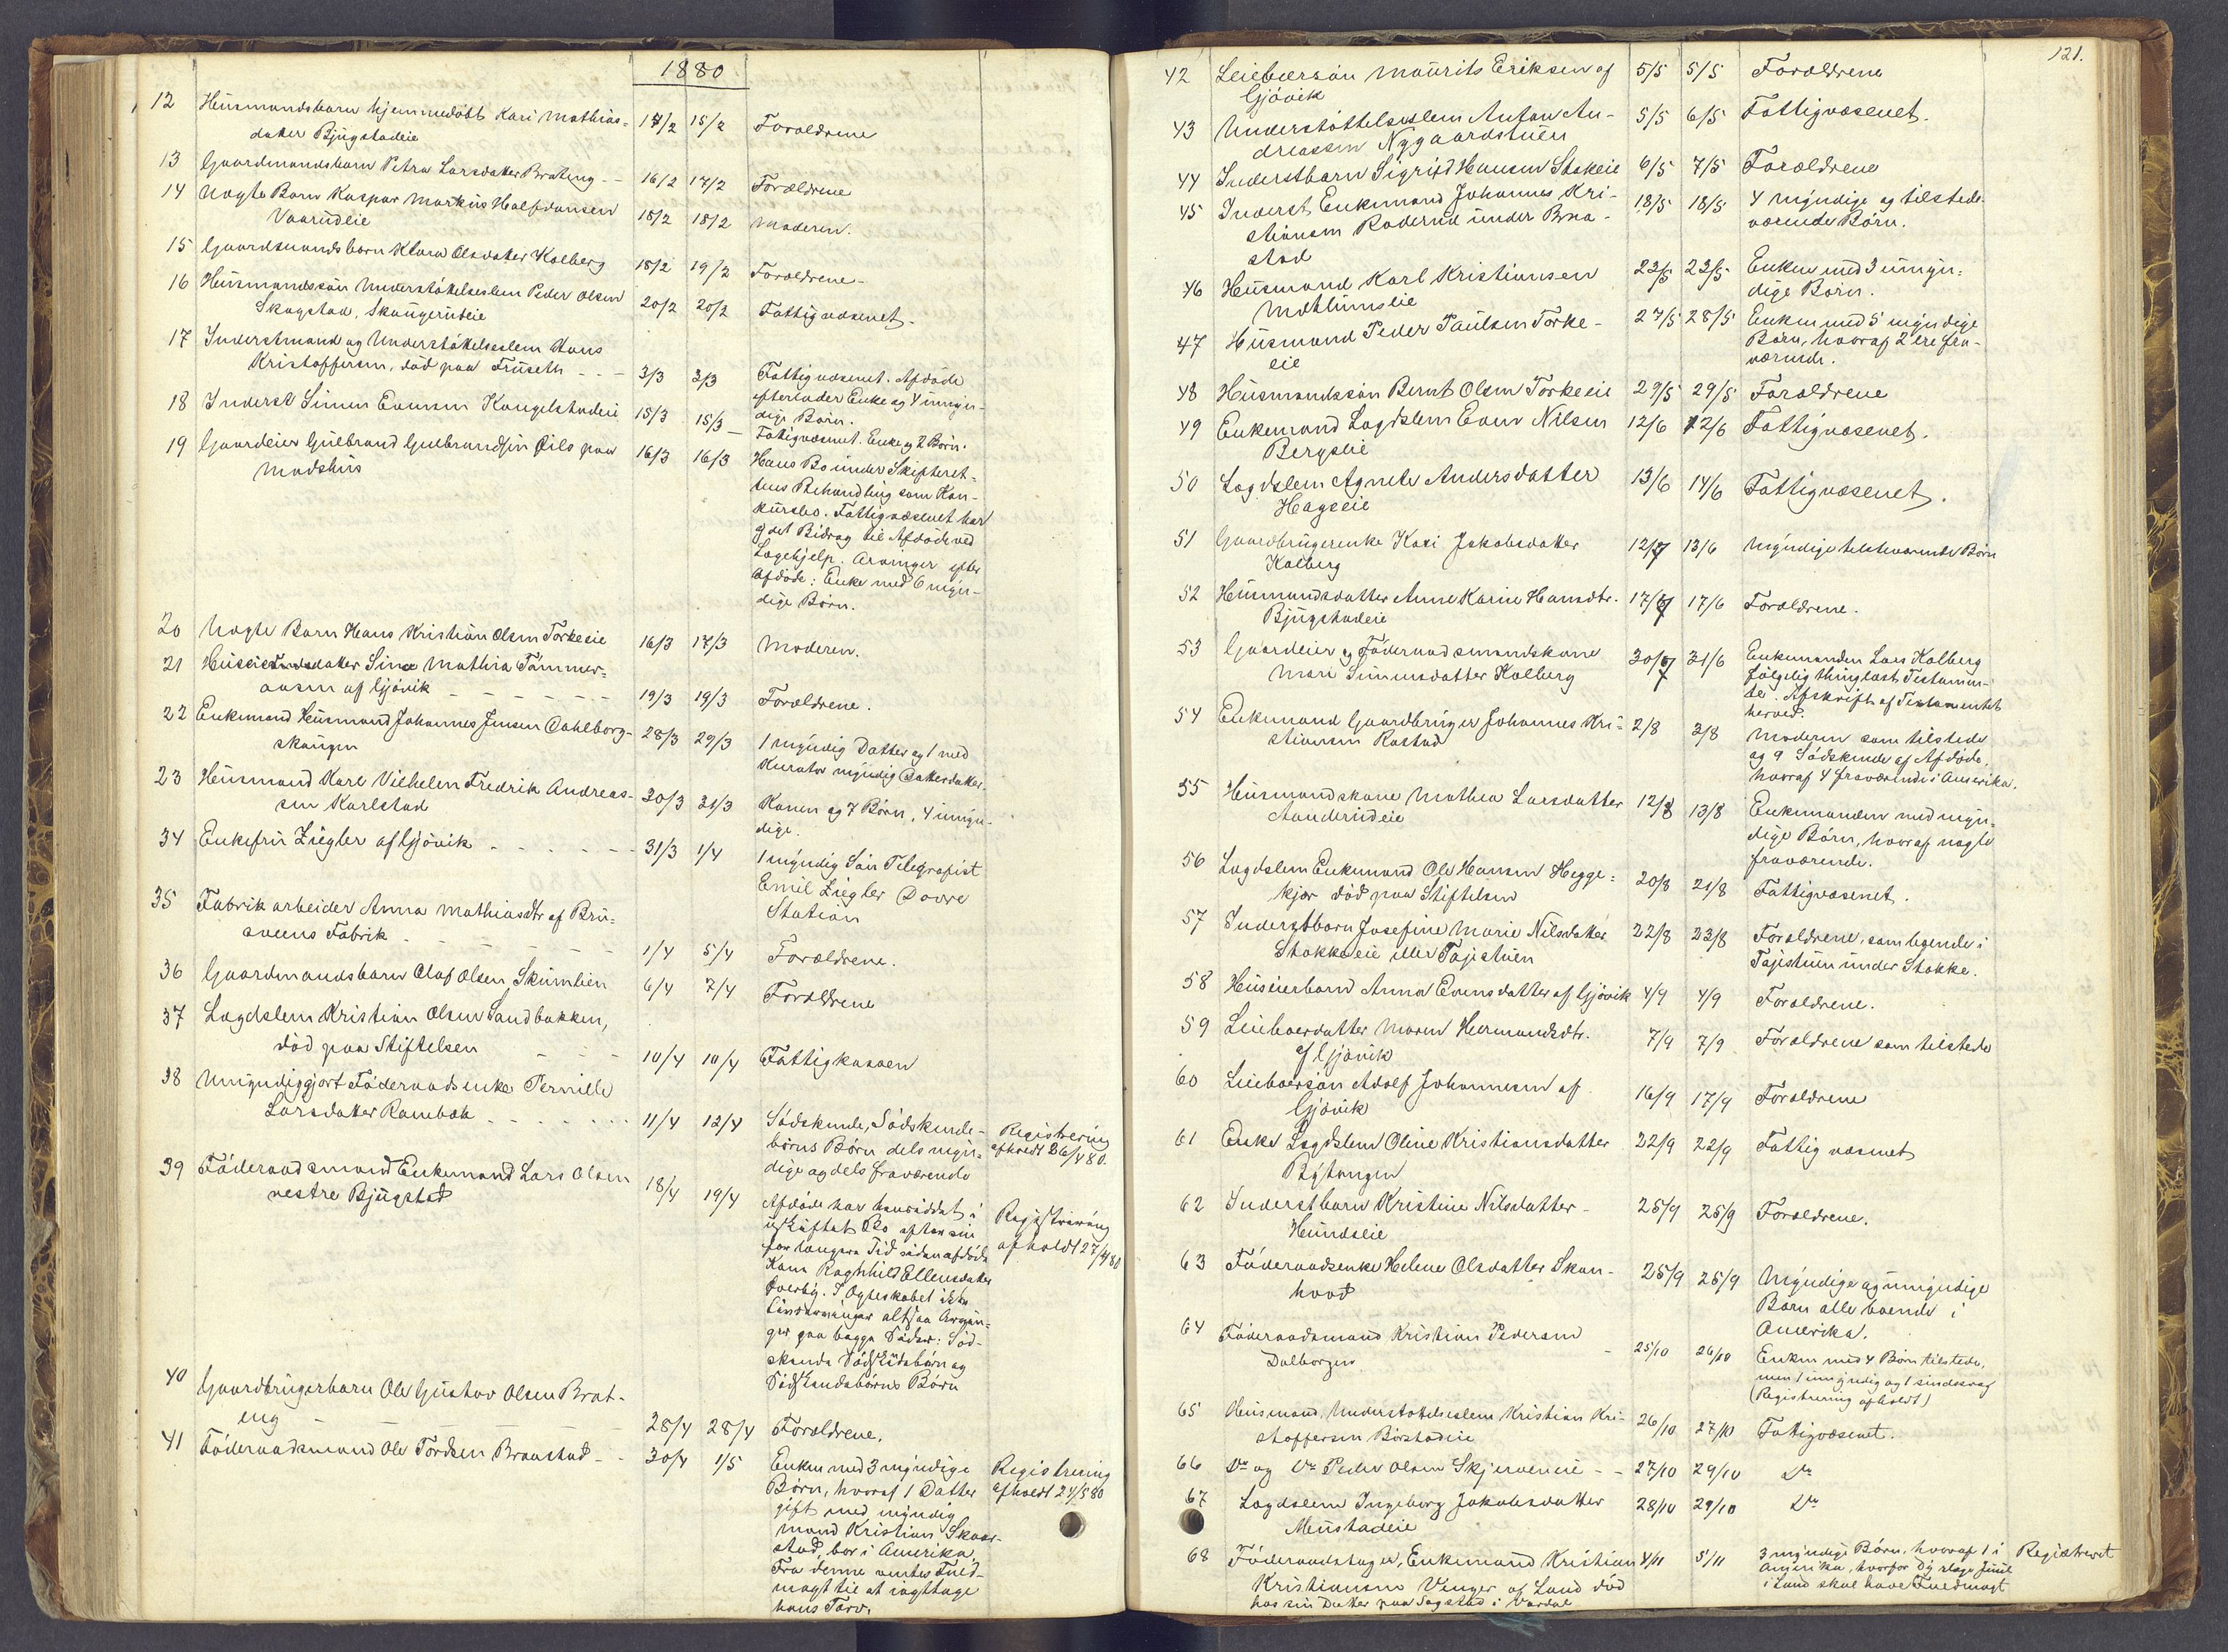 1880
12 Husmandsbarn hjemmedöbt Kari Mathias=
datter Bjugstadeie 14/2 15/2 Forældrene
13 Gaardmandsbarn Petra Larsdatter Brateng - 16/2 17/2 Forældrene
14 Uægte Barn Kaspar Markus Halfdansen
Vaarudeie 18/2 18/2 Moderen.
15 Gaardmandsbarn Klara Olsdatter Kolberg 18/2 19/2 Forældrene -
16 Husmandssön Understöttelseslem Peder Olsen
Skogstad, Skaugerudeie 20/2 20/2 Fattigvæsenet.
17 Inderstmand og Understöttelseslem Hans
Kristoffersen, död paa Fruseth - - - 3/3 3/3 Fattigvæsenet. Afdöde
efterlader Enke og 4 umyn-
dige Börn.
18 Inderst Simen Evensen Kongelstadeie 15/3 15/3 - Fattigvæsenet. Enke og 2 Börn.
19 Gaardeier Gulbrand Gulbrandsen Öils paa
Madshus 16/3 16/3 Hans Bo under Skifteret-
tens Behandling som Kon-
kursbo. Fattigvæsenet har
gjort Bidrag til Afdöde ved
Lægehjelp. Arvinger efter
Afdöde: Enke med 6 myn-
dige Börn.
20 Uægte Barn Hans Kristian Olsen Torkeeie 16/3 17/3 Moderen.
21 Huseiersdatter Sina Mathea Tömmer-
aasen af Gjövik - - - - - - 19/3 19/3 Forældrene.
22 Enkemand Husmand Johannes Jensen Dahlborg-
skaugen 28/3 29/3 1 myndig Datter og 1 med
Kurator myndig Datterdatter.
23 Husmand Karl Vilhelm Fredrik Andreas-
sen Karlstad 30/3 31/3 Konen og 7 Börn, 4 umyn-
dige.
34 Enkefru Ziegler af Gjövik - - - - - - 31/3 1/4 1 myndig Sön Telegrafist
Emil Ziegler Dovre
Station
35 Fabrikarbeider Anna Mathiasdtr af Bru-
sveens Fabrik - - - - - 1/4 5/4 Forældrene.
36 Gaardmandsbarn Olaf Olsen Skumlien 6/4 7/4 Forældrene
37 Lægdslem Kristian Olsen Sandbakken,
död paa Stiftelsen - - - 10/4 10/4 Fattigkassen
38 Umyndiggjort Föderaadsenke Pernille
Larsdatter Rambæk - - - - - - 11/4 12/4 Södskende, Södskende-
börns Börn dels myn-
dige og dels fraværende
Registrering
afholdt 26/4 80.
39 Föderaadsmand Enkemand Lars Olsen
vestre Bjugstad 18/4 19/4 Afdöde har hensiddet i
uskiftet Bo efter sin
for længere Tid siden afdöde
Kone Raghnild Ellensdatter
Överby. I Ægteskabet ikke
Livsarvinger altsaa Arvin-
ger paa begge Sider: Söd-
skende Södskendebörn og
Södskendebörns Börn
Registrering
afholdt 27/4 80
40 Gaardbrugerbarn Ole Gustav Olsen Brat-
eng - 28/4 28/4 Forældrene.
41 Föderaadsmand Ole Tordsen Braastad - - 30/4 1/5 Enken med 3 myndige
Börn, hvoraf 1 Datter
gift med myndig
Mand Kristian Skaar-
stad, bor i Amerika.
Fra denne ventes Fuld-
magt til at iagttage
hans Tarv.
Registrering
afholdt 24/5 80
121.
42 Leieboersön Maurits Eriksen af
Gjövik 5/5 5/5 Forældrene
43 Understöttelseslem Anton An-
dreassen Nygaardstuen 5/5 6/5 Fattigvæsenet.
44 Inderstbarn Sigrid Hansen Stokeie 6/5 7/5 Forældrene
45 Inderst Enkemand Johannes Kri-
stiansen Roderud under Braa-
stad 18/5 18/5 4 myndige og tilstede-
værende Börn.
46 Husmand Karl Kristiansen
Mæhlumseie 23/5 23/5 Enken med 3 umyn-
dige Börn.
47 Husmand Peder Paulsen Torke-
eie 27/5 28/5 Enken med 5 myndige
Börn, hvoraf 2 ere fra-
værende.
48 Husmandssön Bernt Olsen Torkeeie 29/5 29/5 Forældrene
49 Enkemand Lægdslem Even Nilsen
Bergseie 12/6 12/6 Fattigvæsenet.
50 Lægdslem Agnete Andersdatter
Hageeie 13/6 14/6 Fattigvæsenet.
51 Gaardbrugerenke Kari Jakobsdatter
Kolberg 12/6 13/6 Myndige tilstedeværende Börn
52 Husmandsdatter Anne Karine Hansdtr.
Bjugstadeie 17/6 17/6 Forældrene.
53 Gaardeier og Föderaadsmandskone
Mari Simensdatter Kolberg 30/7 31/6 Enkemanden Lars Kolberg
fölgelig thinglæst Testamen-
te. Afskrift af Testamentet
herved.
54 Enkemand Gaardbruger Johannes Kri-
stiansen Rostad 2/8 3/8 Moderen som tilstede
og 9 Södskende af Afdöde,
hvoraf 4 fraværende i Amerika.
55 Husmandskone Mathea Larsdatter
Aanderudeie 12/8 13/8 Enkemanden med myn-
dige Börn, hvoraf nogle
fraværende.
56 Lægdslem Enkemand Ole Hansen Hegge-
kjær död paa Stiftelsen 20/8 21/8 Fattigvæsenet.
57 Inderstbarn Josefine Marie Nilsdatter
Stokkeeie eller Tajestuen 22/8 23/8 Forældrene, som logende i
Tajestuen under Stokke.
58 Huseierbarn Anna Evensdatter af Gjövik 4/9 4/9 Forældrene.
59 Leieboerdatter Maren Hermandsdtr.
af Gjövik 7/9 7/9 Forældrene som tilstede
60 Leieboersön Adolf Johannesen af
Gjövik 16/9 17/9 Forældrene
61 Enke Lægdslem Oline Kristiansdatter
Röjtangen 22/9 22/9 Fattigvæsenet
62 Inderstbarn Kristine Nilsdatter -
Hundseie 25/9 25/9 Forældrene.
63 Föderaadsenke Helene Olsdatter Skon-
hovd 25/9 25/9 Myndige og umyndige
Börn alle boende i
Amerika.
64 Föderaadsmand Kristian Pedersen
Dalborgen - 25/10 26/10 Enken med 4 Börn tilstede,
men 1 umyndig og 1 sindssvag
(Registrering afholdt)
65 Husmand, Understöttelseslem Kristian Kri-
stoffersen Börstadeie 26/10 27/10 Fattigvæsenet.
66 Do og Do Peder Olsen Skjerveneie - - 27/10 29/10 Do
67 Lægdslem Ingeborg Jakobsdatter
Mustadeie 28/10 29/10 Do
68 Föderaadstager, Enkemand Kristian
Kristiansen Vinger af Land död
hos sin Datter paa Sogstad i Vardal 4/11 5/11 3 myndige Börn, hvoraf 1 i
Amerika, hvorfor Juul
i Land skal have Fuldmagt
Registreret